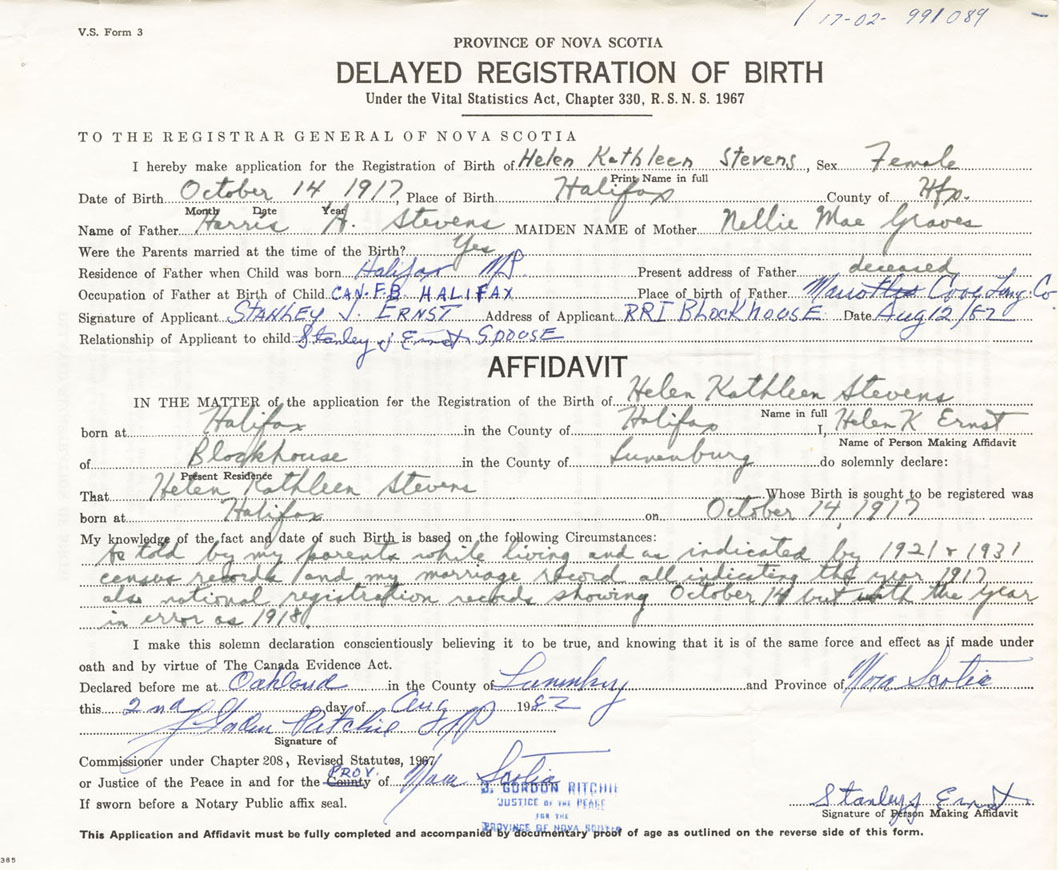 17-02- 991089
V.S. Form 3
PROVINCE OF NOVA SCOTIA
DELAYED REGISTRATION OF BIRTH
Under the Vital Statistics Act, Chapter 330, R.S.N.S. 1967
TO THE REGISTRAR GENERAL OF NOVA SCOTIA
I hereby make application for the Registration of Birth of Helen Kathleen Stevens, Sex Female
Print Name in full
Date of Birth October 14 1917, Place of Birth Halifax County of Hfx.
Month Date Year
Name of Father Harris A. Stevens MAIDEN NAME of Mother Nellie Mae Graves
Were the Parents married at the time of the Birth? Yes
Residence of Father when Child was born Halifax NS Present address of Father deceased
Occupation of Father at Birth of Child CAN.F.B HALIFAX Place of birth of Father Cove Lung. Co.
Signature of Applicant STANLEY J. ERNST Address of Applicant RR1 BLOCKHOUSE Date Aug 12/82
Relationship of Applicant to child Stanley J Ernst SPOUSE
AFFIDAVIT
IN THE MATTER of the application for the Registration of the Birth of Helen Kathleen Stevens
Name in full
born at Halifax in the County of Halifax I, Helen K Ernst
Name of Person Making Affidavit
of Blockhouse in the County of Lunenburg do solemnly declare:
Present Residence
That Helen Kathleen Stevens Whose Birth is sought to be registered was
born at Halifax on October 14, 1917
My knowledge of the fact and date of such Birth is based on the following Circumstances:
As told by my parents while living and as indicated by 1921 & 1931
census records and my marriage record all indicating the year 1917
also national registration records showing October 14 but with the year
in error as 1918.
I make this solemn declaration conscientiously believing it to be true, and knowing that it is of the same force and effect as if made under
oath and by virtue of The Canada Evidence Act.
Declared before me at Oakland in the County of Lunenburg and Province of Nova Scotia
this 2nd day of Aug 1982
J Gordon Ritchie JP
Signature of
Commissioner under Chapter 208, Revised Statutes, 1967
PROV.
or Justice of the Peace in and for the County of Nova Scotia
J. GORDON RITCHIE
If sworn before a Notary Public affix seal.
JUSTICE OF THE PEACE
FOR THE
PROVINCE OF NOVA SCOTIA
Stanley J Ernst
Signature of Person Making Affidavit
This Application and Affidavit must be fully completed and accompanied by documentary proof of age as outlined on the reverse side of this form.
385